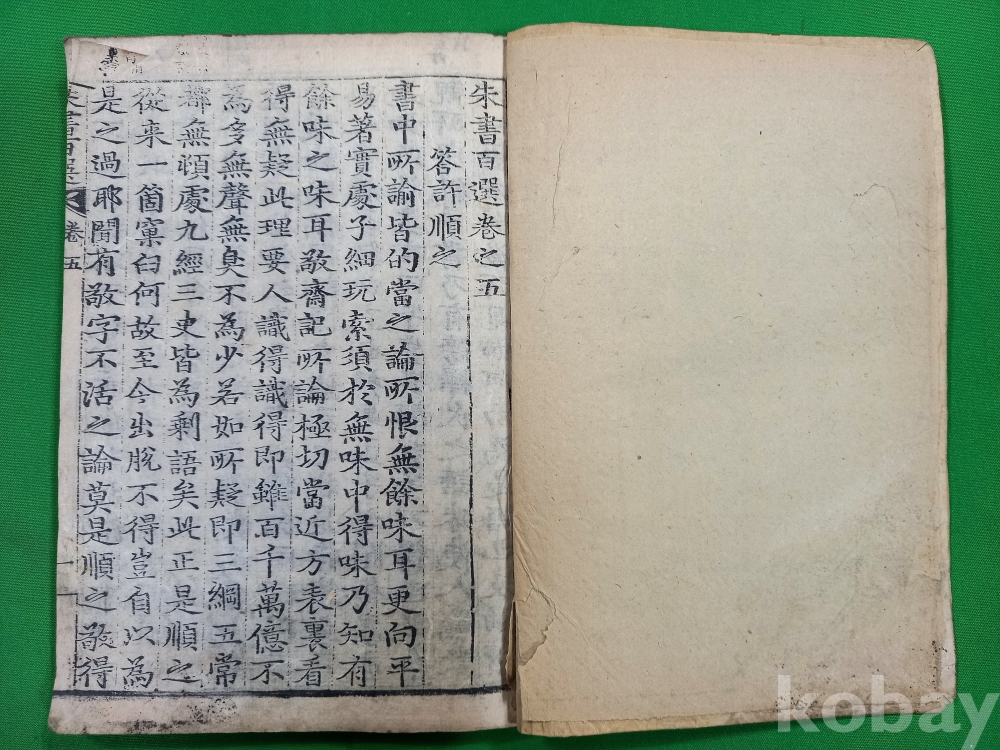 朱書百選卷之五
答許順之
書中所諭皆的當之論所恨無餘味耳更向平
易著實處子細玩索須於無味中得味乃知有
餘味之味耳敬齋記所論極切當近方表裏看
得無疑此理要人識得識得即雖百千萬億不
為多無聲無臭不為少若如所疑即三綱五常
都無頓處九經三史皆為剩語矣此正是順之
從來一箇窠臼何故至今出脫不得豈自以為
是之過耶聞有敬字不活之論莫是順之敬得
朱書百選
卷五
一
kobay